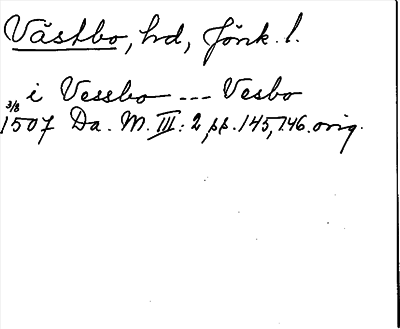 Västbo, hrd, Jönk. l.
i Vessbo --- Vesbo
3/8 1507 Da. M. III: 2, pp. 145, 146. orig.